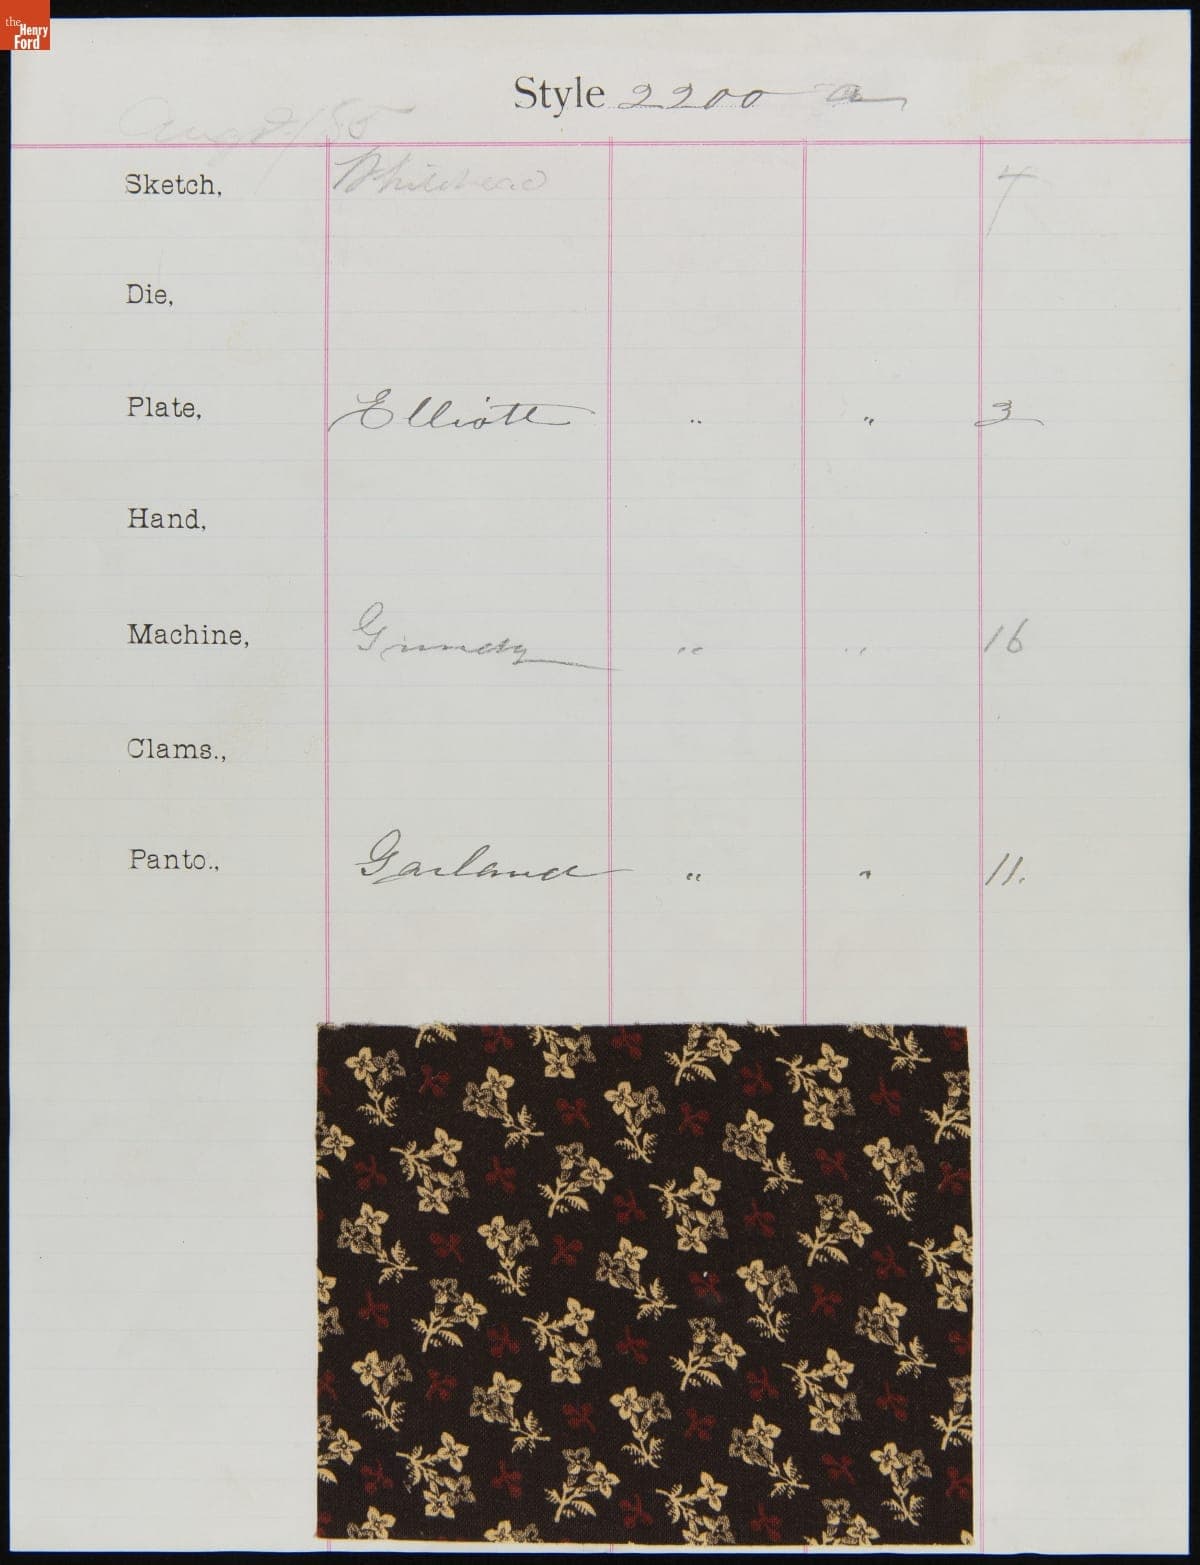 the
Henry
Ford
Style 2200 a
Sketch, Whitehead 4
Die,
Plate, Elliott " " 3
Hand,
Machine, Grundy " " 16
Clams.,
Panto., Garland " " 11.